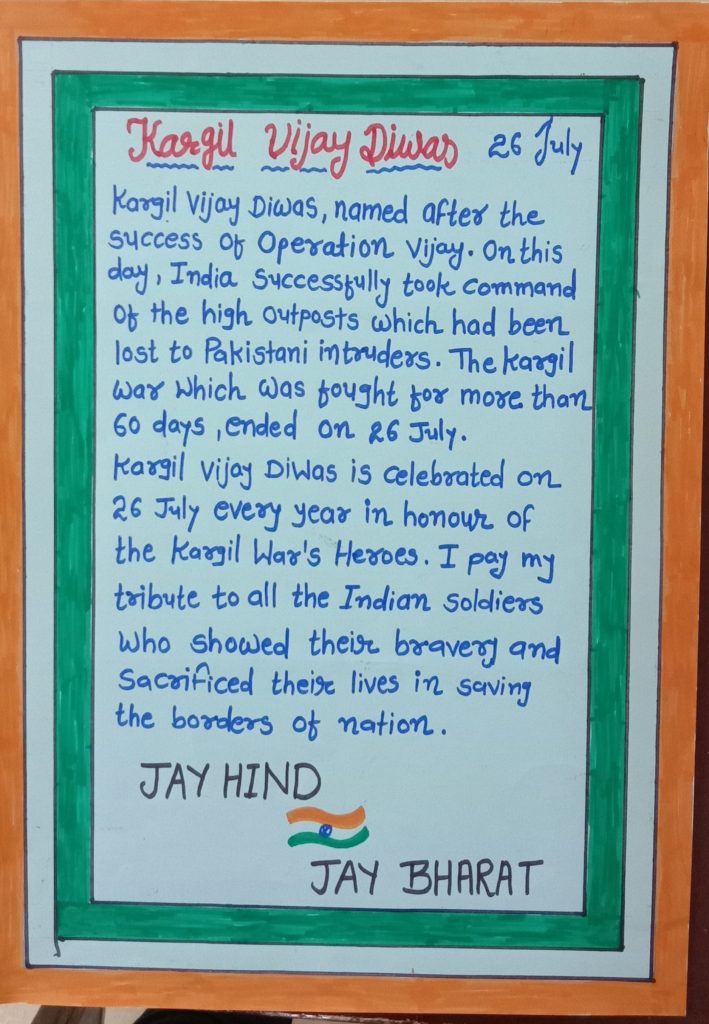 Kargil Vijay Diwas 26 July
Kargil Vijay Diwas, named after the
success of Operation Vijay. On this
day, India successfully took command
of the high outposts which had been
lost to Pakistani intruders. The Kargil
war which was fought for more than
60 days, ended on 26 July.
Kargil Vijay Diwas is celebrated on
26 July every year in honour of
the Kargil War's Heroes. I pay my
tribute to all the Indian soldiers
who showed their bravery and
sacrificed their lives in saving
the borders of nation.
JAY HIND
JAY BHARAT